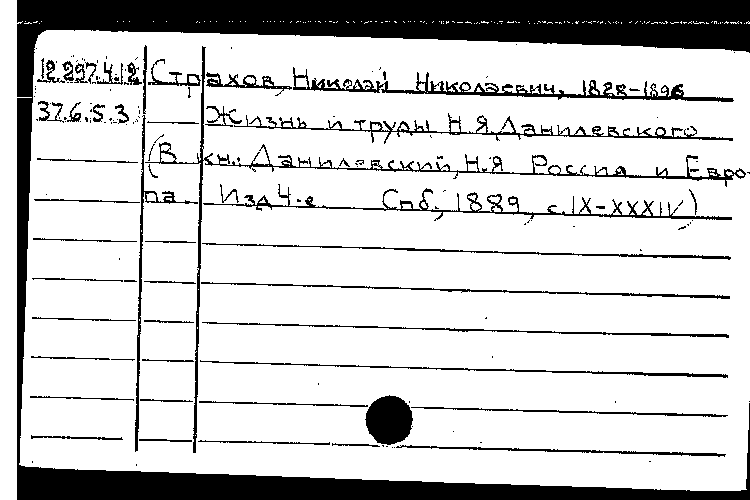 12.297.4.12 Страхов, Николай Николаевич, 1828-1896
37.6.5.3 Жизнь и труды Н.Я.Данилевского
(В кн.: Данилевский, Н.Я Россия и Евро-
па. Изд 4-е. Спб, 1889, с. IX-XXXIV)